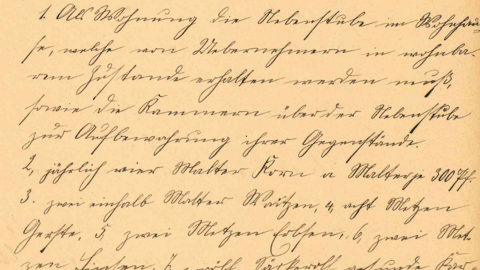 1. Als Wohnung die Nebenstube im Wohnhau-
se, welche von Uebernehmern in wohnba-
rem Zustande erhalten werden muß,
sowie die Kammern über der Nebenstube
zur Aufbewahrung ihrer Gegenstände.
2, jährlich vier Malter Korn a Malter je 300 Pf.
3. zwei einhalb Malter Waitzen, 4, acht Metzen
Gerste, 5 zwei Metzen Erbsen, 6, zwei Met-
zen Linsen, 7,